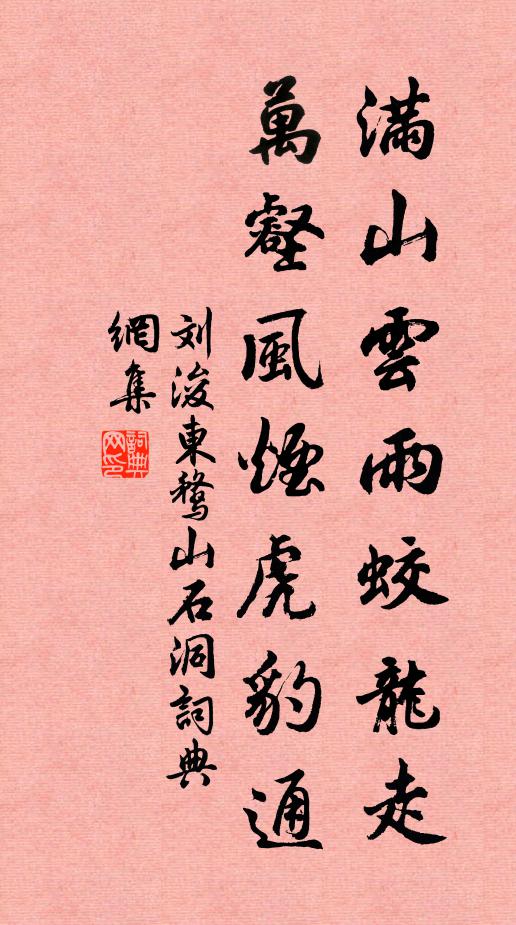 滿山雲雨蛟龍走
萬壑風煙虎豹通
刘浚東鶩山石洞詞典
網集
詞典
网印